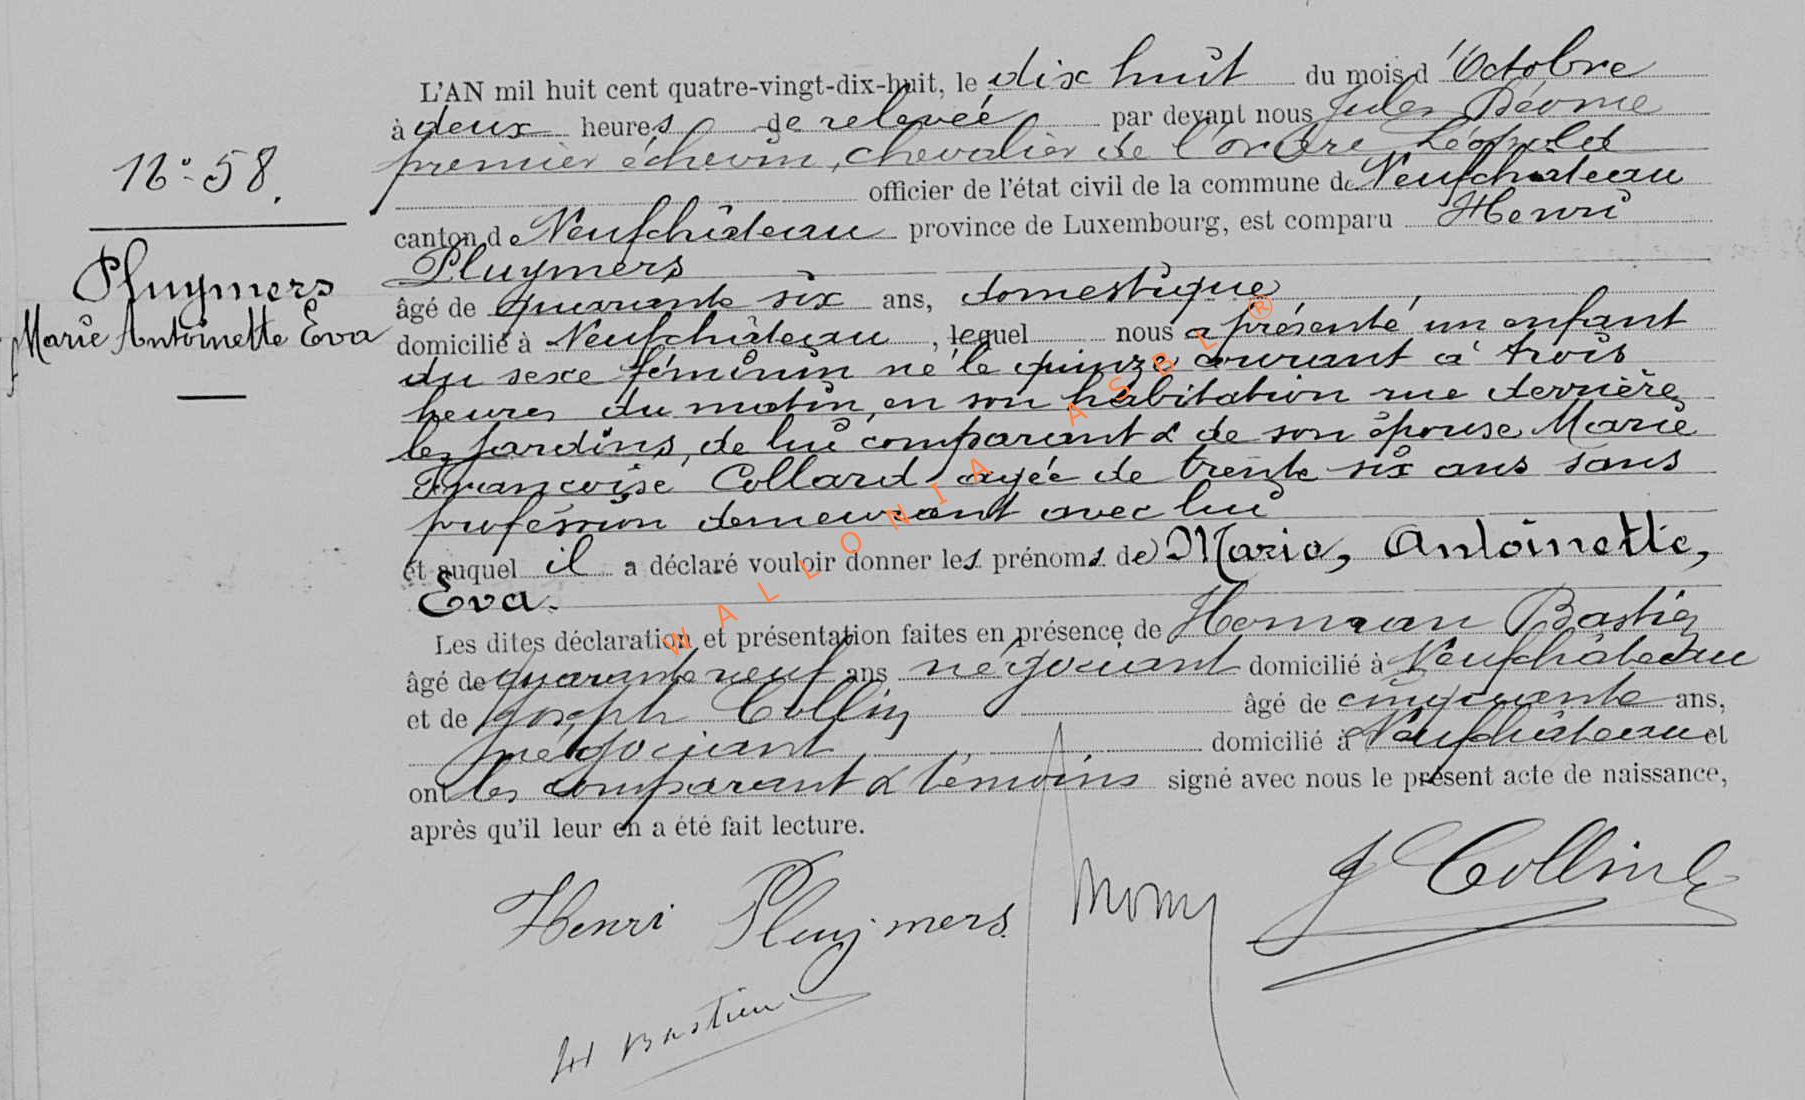 N° 58.
Pluymers
Marie Antoinette Eva
L'AN mil huit cent quatre-vingt-dix-huit, le dix huit du mois d'Octobre
à deux heures de relevée par devant nous Jules
premier échevin, chevalier de l'ordre Léopold
officier de l'état civil de la commune de Neufchateau
canton de Neufchâteau province de Luxembourg, est comparu Henri
Pluymers
âgé de quarante six ans, domestique
domicilié à Neufchâteau, lequel nous a présenté un enfant
du sexe féminin né le quinze courant à trois
heures du matin, en son habitation rue derrière
les jardins, de lui comparant & de son épouse Marie
Françoise Collard agée de trente six ans sans
profession demeurant avec lui
et auquel il a déclaré vouloir donner les prénoms de Marie, Antoinette,
Eva.
Les dites déclaration et présentation faites en présence de Herman Bastien
âgé de quarante neuf ans négociant domicilié à Neufchâteau
et de Joseph Collin âgé de cinquante ans,
négociant domicilié à Neufchâteau et
ont les comparant & témoins signé avec nous le présent acte de naissance,
après qu'il leur en a été fait lecture.
Henri Pluymers
J Collin
H Bastien
WALLONIA ASBL ®